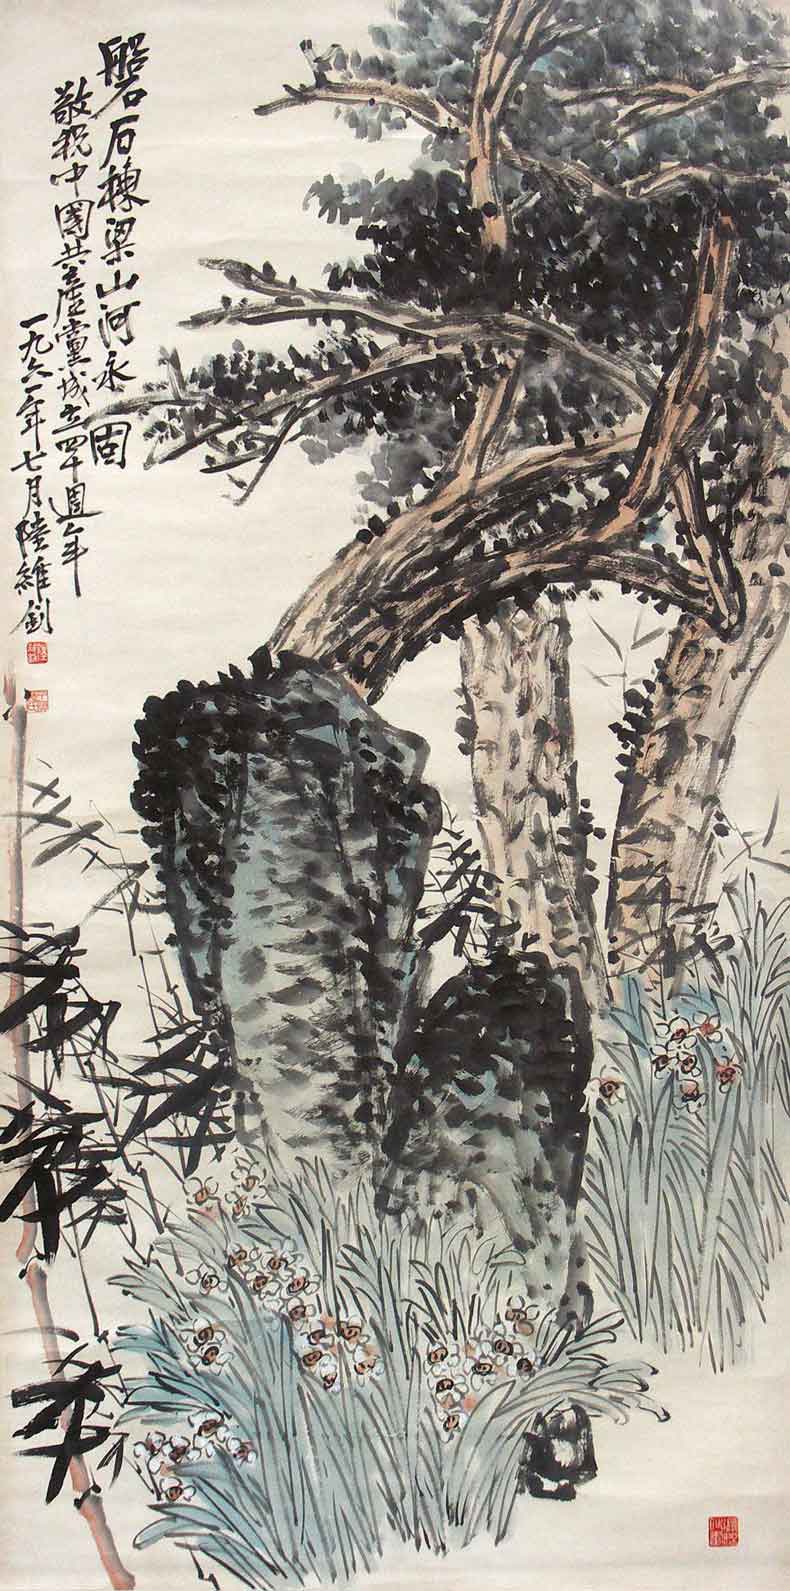 磐石棟梁山河永固
敬祝中國共產黨成立四十週年
一九六一年七月陸維釗